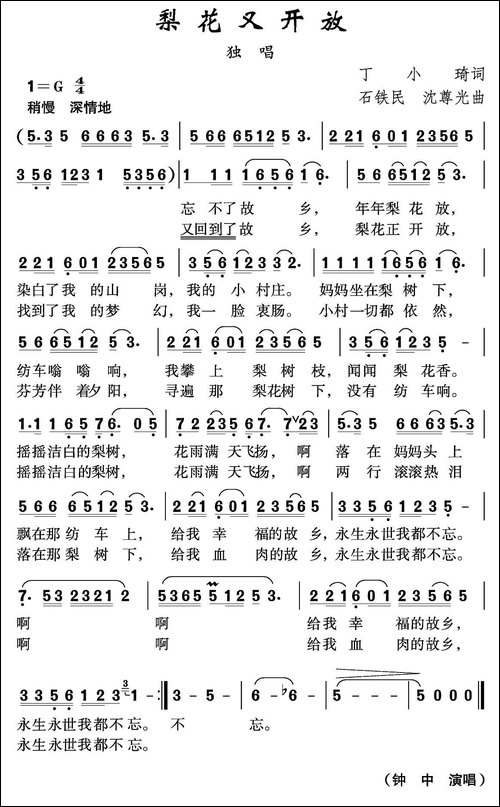 梨花又开放
独 唱
丁 小 琦词
1=G 4/4
石铁民 沈尊光曲
稍慢 深情地
(5·3 5 6663 5·3 | 5666512 53· | 221 601 2352321 |
3561231 5356) | 1 1 11 1656 16· | 5665125 3· |
忘 不了故 乡, 年年梨 花 放,
又回到了故 乡, 梨花正 开 放,
221 601 23565 | 35612332· | 1111 1656 16· |
染白了我 的山 岗, 我的 小 村庄。 妈妈坐在梨 树 下,
找到了我 的梦 幻, 我一 脸 衷肠。 小村一切都 依 然,
56651253· | 221·601 23565 | 35612321 |
纺车嗡 嗡响, 我攀 上 梨 树 枝, 闻闻 梨 花香。
芬芳伴 着夕阳, 寻遍 那 梨花树 下, 没有 纺 车响。
1·1 1 65 76· 05 | 7 2 23567· 723 | 5·35 2352321 |
摇摇洁白的梨树, 花雨满 天飞扬, 啊 落 在 妈妈头 上
摇摇洁白的梨树, 花雨满 天飞扬, 啊 两 行 滚滚热 泪
56651253· | 221601 23565 | 33561235 - |
飘在那 纺 车 上, 给我 幸 福的故 乡, 永生永世我都不 忘。
落在那 梨 树 下, 给我 血 肉的故 乡, 永生永世我都不 忘。
7· 53 23212 | 5365 5125 3· | 221601 23565 |
啊 啊 给我 幸 福的故 乡,
啊 啊 给我 血 肉的故 乡,
3356 123 1 - :| 3 - 5 - | 6 - ♭6 - | 5 - - - | 5000 ‖
永生永世我都不 忘。 不 忘。
永生永世我都不 忘。
(钟 中 演唱)